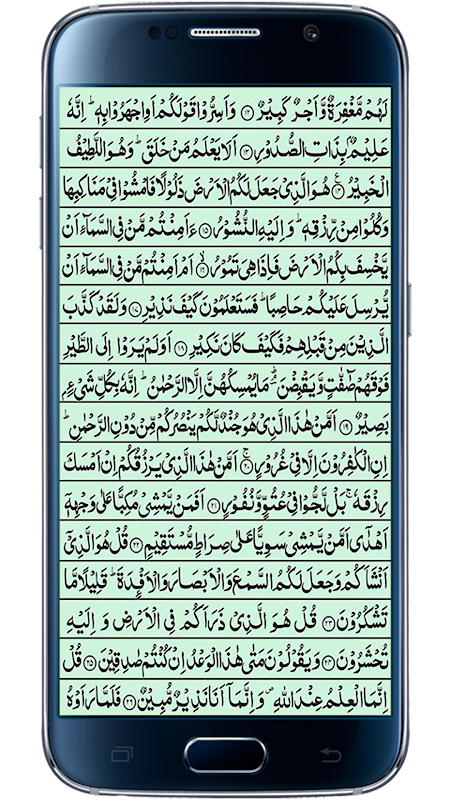 لَهُمْ مَّغْفِرَةٌ وَّاَجْرٌ كَبِيْرٌ ﴿۱۲﴾ وَاَسِرُّوْا قَوْلَكُمْ اَوِاجْهَرُوْا بِهٖ ؕ اِنَّهٗ
عَلِيْمٌۢ بِذَاتِ الصُّدُوْرِ ﴿۱۳﴾ اَلَا يَعْلَمُ مَنْ خَلَقَ ؕ وَهُوَ اللَّطِيْفُ
الْخَبِيْرُ ﴿۱۴﴾ هُوَ الَّذِيْ جَعَلَ لَكُمُ الْاَرْضَ ذَلُوْلًا فَامْشُوْا فِيْ مَنَاكِبِهَا
وَكُلُوْا مِنْ رِّزْقِهٖ ؕ وَاِلَيْهِ النُّشُوْرُ ﴿۱۵﴾ ءَاَمِنْتُمْ مَّنْ فِي السَّمَآءِ اَنْ
يَّخْسِفَ بِكُمُ الْاَرْضَ فَاِذَا هِيَ تَمُوْرُ ﴿۱۶﴾ اَمْ اَمِنْتُمْ مَّنْ فِي السَّمَآءِ اَنْ
يُّرْسِلَ عَلَيْكُمْ حَاصِبًا ؕ فَسَتَعْلَمُوْنَ كَيْفَ نَذِيْرِ ﴿۱۷﴾ وَلَقَدْ كَذَّبَ
الَّذِيْنَ مِنْ قَبْلِهِمْ فَكَيْفَ كَانَ نَكِيْرِ ﴿۱۸﴾ اَوَلَمْ يَرَوْا اِلَى الطَّيْرِ
فَوْقَهُمْ صٰٓفّٰتٍ وَّيَقْبِضْنَ ؔۘ مَا يُمْسِكُهُنَّ اِلَّا الرَّحْمٰنُ ؕ اِنَّهٗ بِكُلِّ شَيْءٍۭ
بَصِيْرٌ ﴿۱۹﴾ اَمَّنْ هٰذَا الَّذِيْ هُوَ جُنْدٌ لَّكُمْ يَنْصُرُكُمْ مِّنْ دُوْنِ الرَّحْمٰنِ ؕ
اِنِ الْكٰفِرُوْنَ اِلَّا فِيْ غُرُوْرٍ ﴿۲۰﴾ اَمَّنْ هٰذَا الَّذِيْ يَرْزُقُكُمْ اِنْ اَمْسَكَ
رِزْقَهٗ ۚ بَلْ لَّجُّوْا فِيْ عُتُوٍّ وَّنُفُوْرٍ ﴿۲۱﴾ اَفَمَنْ يَّمْشِيْ مُكِبًّا عَلٰى وَجْهِهٖٓ
اَهْدٰٓى اَمَّنْ يَّمْشِيْ سَوِيًّا عَلٰى صِرَاطٍ مُّسْتَقِيْمٍ ﴿۲۲﴾ قُلْ هُوَ الَّذِيْٓ
اَنْشَاَكُمْ وَجَعَلَ لَكُمُ السَّمْعَ وَالْاَبْصَارَ وَالْاَفْـِٕدَةَ ؕ قَلِيْلًا مَّا
تَشْكُرُوْنَ ﴿۲۳﴾ قُلْ هُوَ الَّذِيْ ذَرَاَكُمْ فِي الْاَرْضِ وَ اِلَيْهِ
تُحْشَرُوْنَ ﴿۲۴﴾ وَيَقُوْلُوْنَ مَتٰى هٰذَا الْوَعْدُ اِنْ كُنْتُمْ صٰدِقِيْنَ ﴿۲۵﴾ قُلْ
اِنَّمَا الْعِلْمُ عِنْدَ اللّٰهِ ۪ وَ اِنَّمَآ اَنَا نَذِيْرٌ مُّبِيْنٌ ﴿۲۶﴾ فَلَمَّا رَاَوْهُ